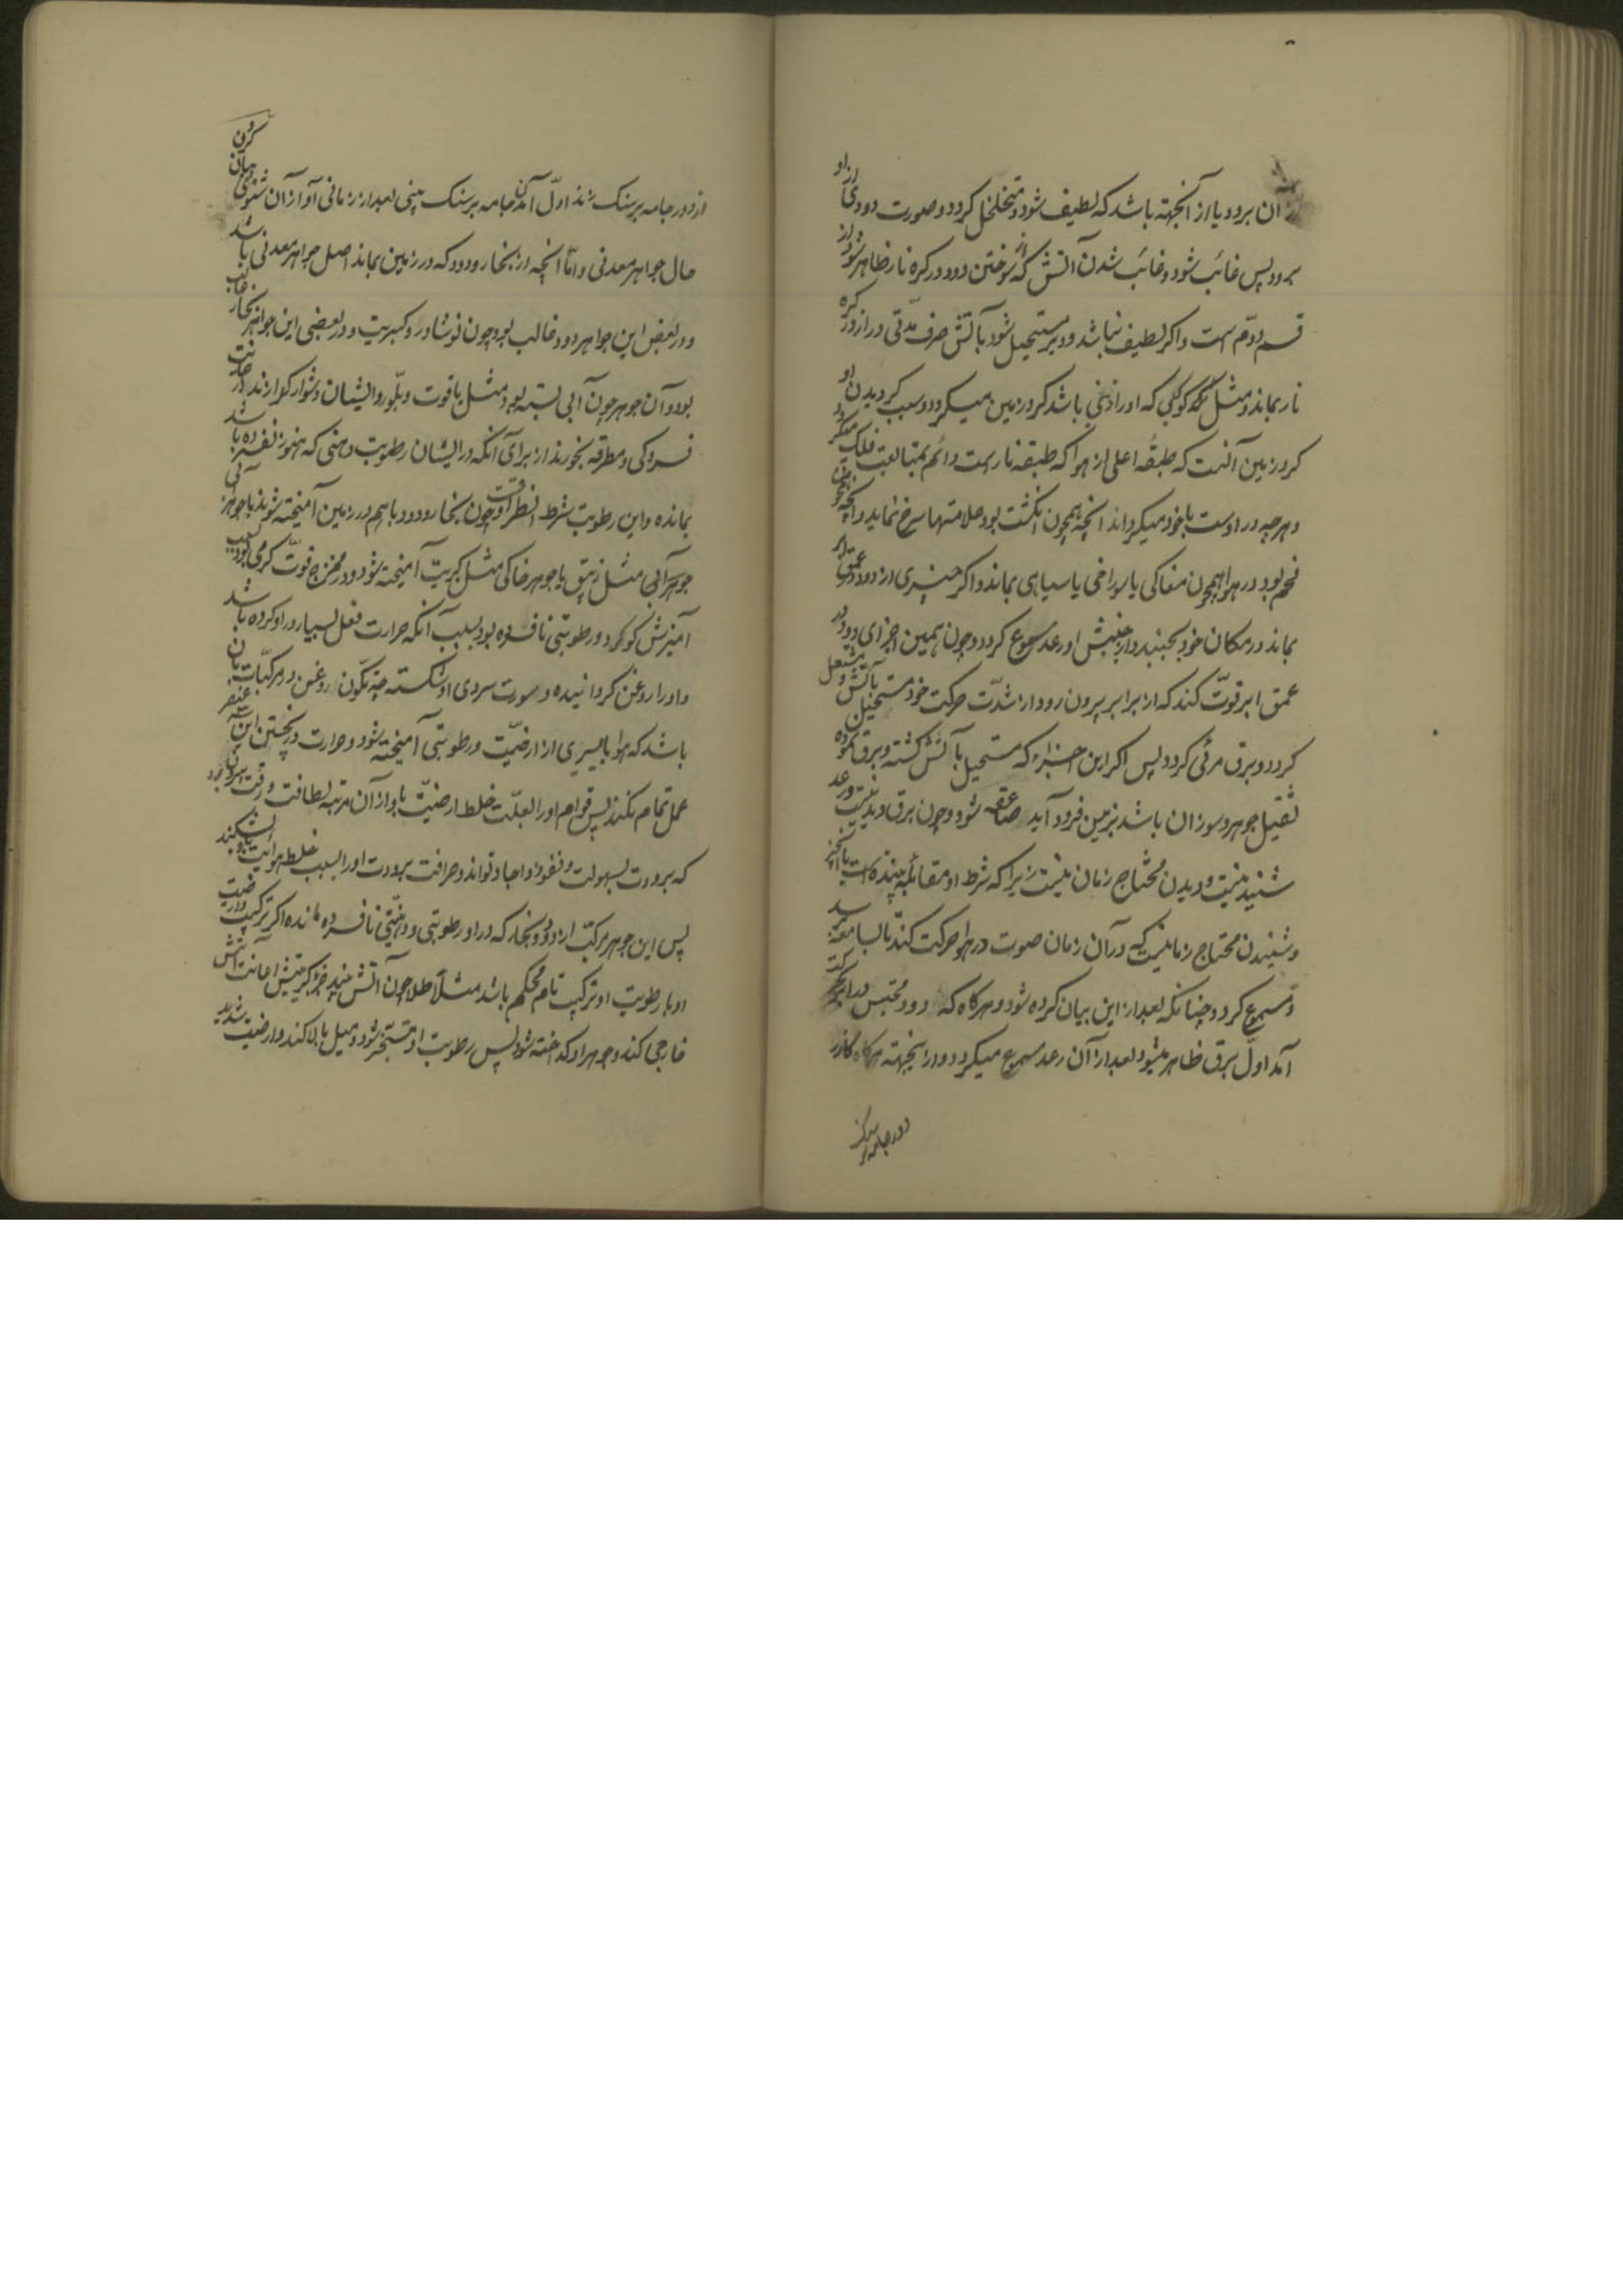 از آن برود یا از آنجهته باشد که لطیف شود و متخلخل کردد و صورت دودی از او
برود پس غائب شود و غائب شدن آتش که از سوختن دود در کره نار ظاهر شود از
قسم دوّم است و اکر لطیف نباشد و دیر مستحیل شود بآتش صرف مدّتی دراز در کره
نار بماند و مثل کوکبی که او را ذنبی باشد کرد زمین میکردد و سبب کردیدن او
کرد زمین آنست که طبقهٔ اعلی از هوا که طبقه نارست دائم بمتابعت فلک میکردد
و هرچه در اوست با خود میکرداند آنچه همچون انکشت بود علامتها سرخ نماید و آنچه
فحم بود در هوا همچون مغاکی یا سوراخی یا سیاهی بماند و اکر چیزی از دود در عمق ابر
بماند در مکان خود بجنبد و از جنبش او رعد مسموع کردد و چون همین اجزای دود در
عمق ابر قوّت کند که از برابر بیرون رود از شدّت حرکت خود مستحیل بآتش و مشتعل
کردد و برق مرئی کردد پس اکر این اجزاء که مستحیل بآتش کشته و برق نموده
ثقیل جوهر و سوزان باشد بزمین فرود آید صاعقه شود و چون برق دیدنیست و رعد
شنیدنیست و دیدن محتاج زمان نیست زیرا که شرط او مقابله بیننده است با آن چیز
و شنیدن محتاج زمانیست که در آن زمان صوت در هوا حرکت کند تا بسامعه رسد
و مسموع کردد چنانکه بعد از این بیان کرده شود و هرکاه که دود محتبس در ابر بحرکت
آمد اوّل برق ظاهر میشود بعد از آن رعد مسموع میکردد و ازینجهته هرکاه کازر
دور جامه بر سنک
از دور جامه بر سنک زند اوّل آمدن جامه بر سنک بینی بعد از زمانی آواز آن شنوی
حال جواهر معدنی و امّا آنچه از بخار و دود که در زمین بماند اصل جواهر معدنی باشد
و در بعض این جواهر دود غالب بود چون نوشادر و کبریت و در بعضی این جواهر بخار غالب
بود و آن جوهر چون آبی بسته بود مثل یاقوت و بلّور و ایشان دشوار کدازند
فسردکی و مطرقه نخورند از برای آنکه در ایشان رطوبت دهنی که هنوز نفسرده باشد
نمانده و این رطوبت شرط انطراقست و چون بخار و دود با هم در زمین آمیخته شوند یا جوهر آبی
جوهر آبی مثل زیبق با جوهر خاکی مثل کبریت آمیخته شود و در ممتزج قوّت کرمی بود بسبب
آمیزش کوکرد و رطوبتی نافسرده بود بسبب آنکه حرارت فعل بسیار در او کرده باشد
و او را روغن کردانیده و سورت سردی او شکسته چه تکوّن روغن در مرکّبات بآن
باشد که هوا با یسیری از ارضیّت و رطوبتی آمیخته شود و حرارت در پختن این سه عنصر
عمل تمام نکند پس قوام او را بعلّت خلط ارضیّت با او از آن مرتبه لطافت و رقّت
که برودت بسهولت و نفوذ و اجماد تواند و حرافت برودت او را بسبب خلط هوائیت بشکند
پس این جوهر مرکّب از دود و بخار که در او رطوبتی و دهنیّتی نافسرده مانده اکر ترکیب ارضیت
او با رطوبت او ترکیب تام محکم باشد مثلاً طلا چون آتش
خارجی کند و جوهر او کداخته شود پس رطوبت او متبخّر شود و میل ببالا کند و ارضیت